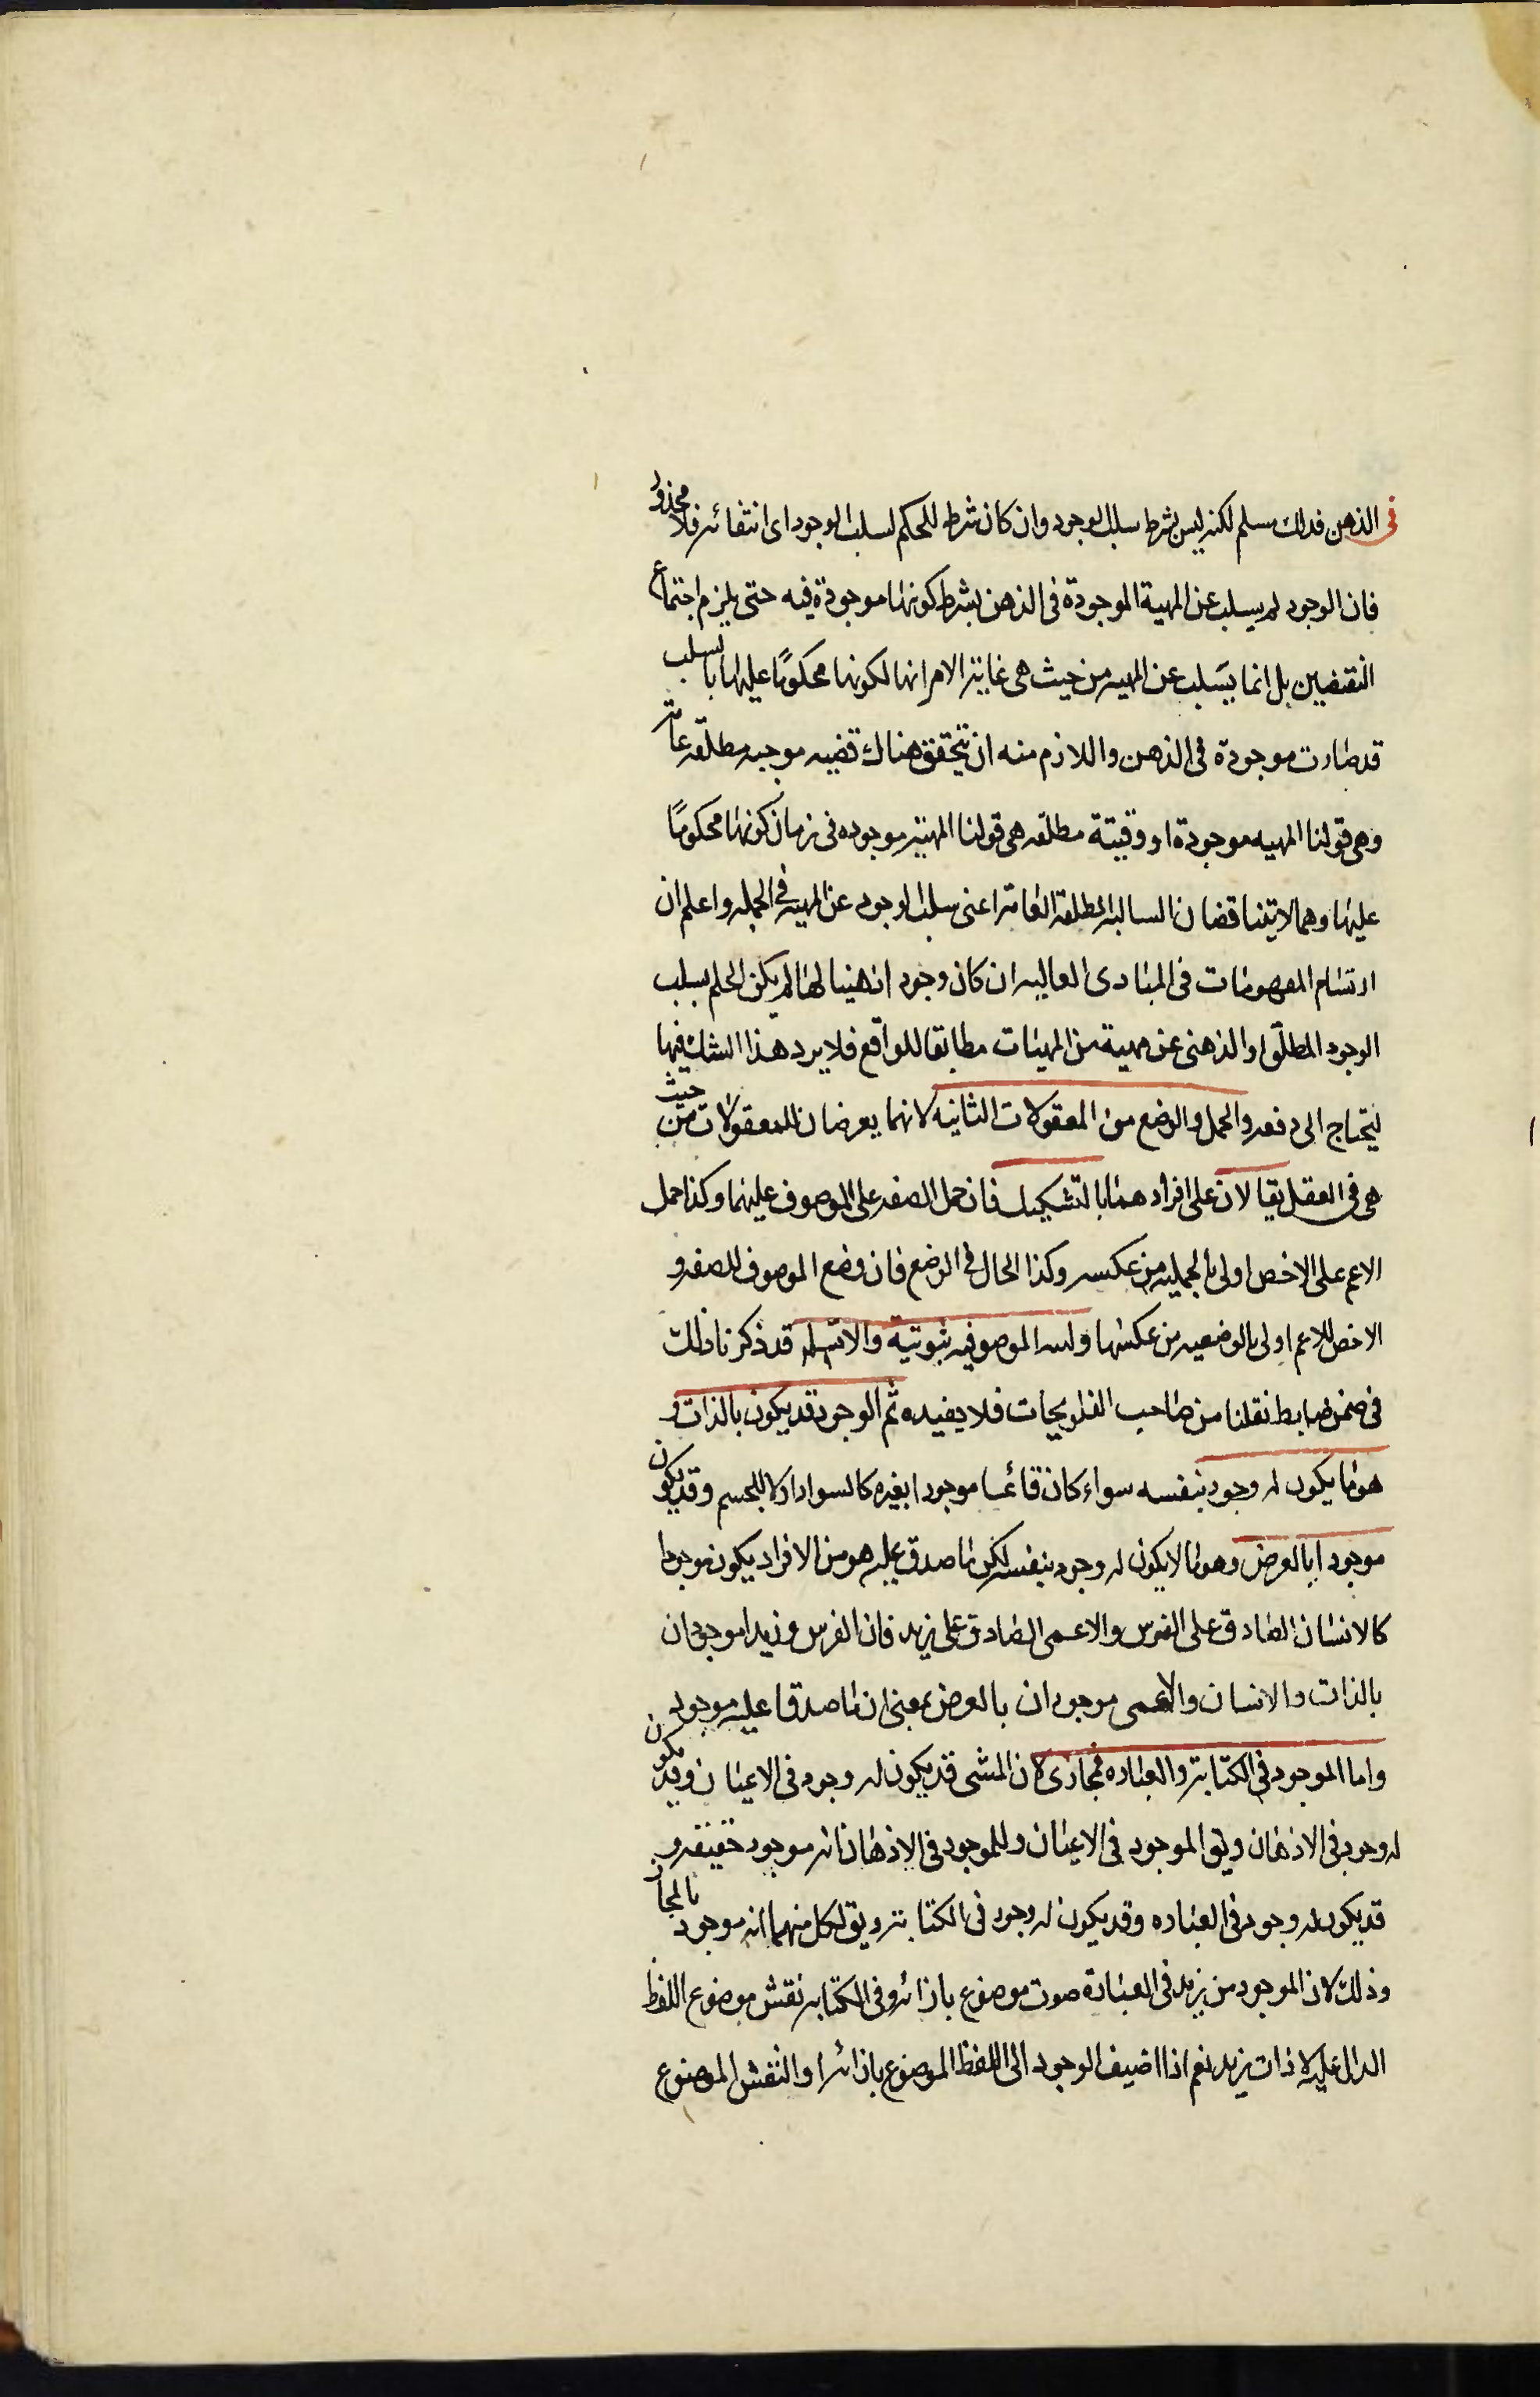 فى الذهن فذلك مسلم لكنه ليس بشرط سلب الوجود وان كان شرط للحكم لسلب الوجود اى انتفائه فلا محذور
فان الوجود لم يسلب عن المهية الموجودة فى الذهن بشرط كونها موجودة فيه حتى يلزم اجتماع
النقيضين بل انما يسلب عن المهيه من حيث هى غاية الامر انها لكونها محكومًا عليها بالسلب
قد صارت موجودة فى الذهن واللازم منه ان يتحقق هناك قضيه موجبه مطلقه عامة
وهى قولنا المهيه موجودة او وقتية مطلقه هى قولنا المهية موجوده فى زمان كونها محكومًا
عليها وهما لا يتناقضان السالبة المطلقة العامة اعنى سلب الوجود عن المهية فى الجملة واعلم ان
ارتسام المفهومات فى المبادى العاليه ان كان وجودا ذهنيا لها لم يكن الحكم بسلب
الوجود المطلق او الذهنى عن مهية من المهيات مطابقا للواقع فلا يرد هذا الشك فيها
ليحتاج الى دفعه والحمل والوضع من المعقولات الثانيه لانهما يعرضان للمعقولات من حيث
هى فى العقل يقالان على افرادهما بالتشكيك فان حمل الصفه على الموصوف عليهما وكذا حمل
الاعم على الاخص اولى بالحمليه من عكسه وكذا الحال فى الوضع فان وضع الموصوف للصفه و
الاخص للاعم اولى بالوضعيه من عكسها وليست الموصوفيه ثبوتية والا تسلسل قد ذكرنا ذلك
فى ضمن ضابط نقلنا من صاحب التلويحات فلا يفيده ثم الوجود قد يكون بالذات و
هو ما يكون له وجود بنفسه سواء كان قائما موجودا بغيره كالسواد او لا كالجسم وقد يكون
موجودا بالعرض وهو ما لا يكون له وجود بنفسه لكن ما صدق عليه هو من الافراد يكون موجودا
كالانسان الصادق على الفرس والاعمى الصادق على زيد فان الفرس وزيدا موجودان
بالذات والانسان والاعمى موجودان بالعرض بمعنى ان ما صدقا عليه موجود
واما الموجود فى الكتابة والعباره فمجازى لان الشى قد يكون له وجود فى الاعيان وقد يكون
له وجود فى الاذهان ويق الموجود فى الاعيان وللموجود فى الاذهان انه موجود حقيقه و
قد يكون له وجود فى العباره وقد يكون له وجود فى الكتابة ويق لكل منهما انه موجود بالمجاز
وذلك لان الموجود من زيد فى العبارة صوت موضوع بازائه وفى الكتابه نقش موضوع اللفظ
الدال عليه لا ذات زيد نعم اذا اضيف الوجود الى اللفظ الموضوع بازائه او النقش الموضوع